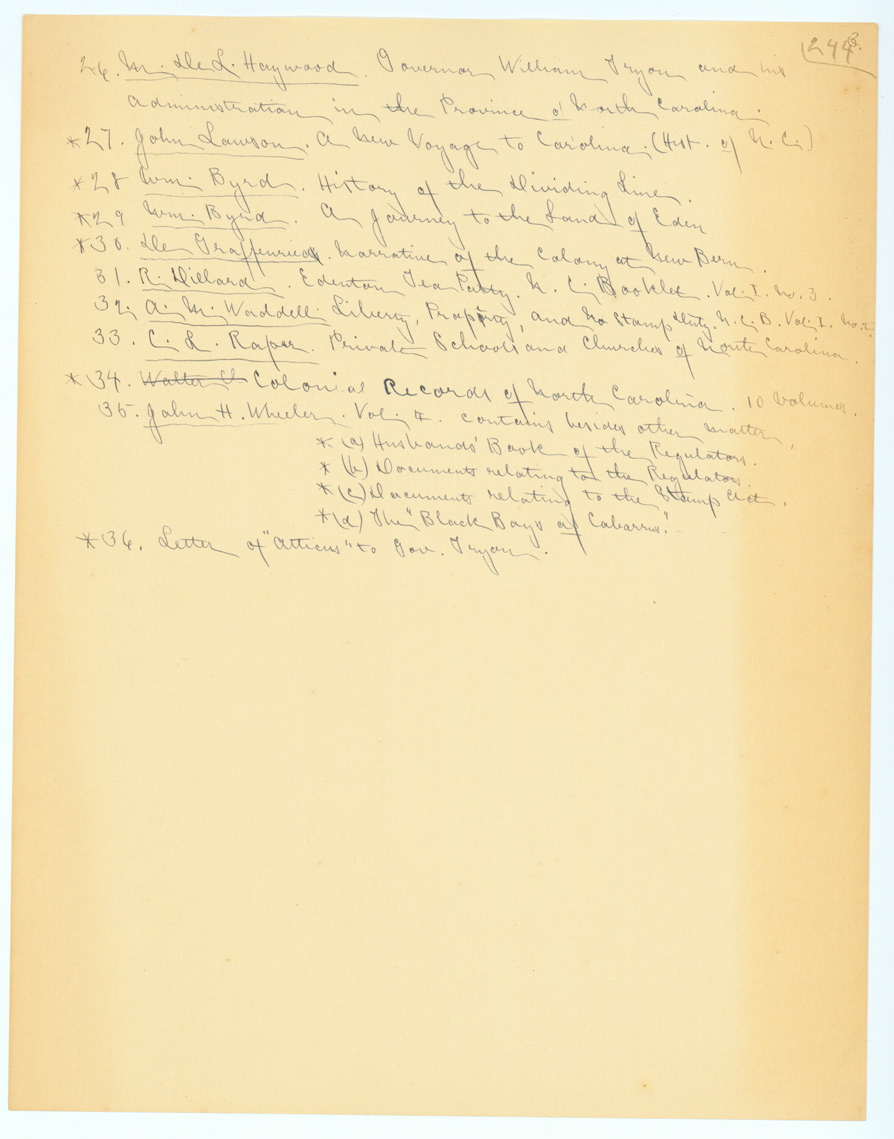 244 3.
26. M. De L. Haywood. Governor William Tryon and his
administration in the Province of North Carolina.
*27. John Lawson. A New Voyage to Carolina. (Hist. of N. C.)
*28 Wm. Byrd. History of the Dividing Line.
*29 Wm. Byrd. A Journey to the Land of Eden
*30. De Graffenried. Narrative of the Colony at New Bern.
31. R. Dillard. Edenton Tea Party. N. C. Booklet. Vol. I. No. 3.
32. A. M. Waddell. Liberty, Property, and No Stamp Duty. N. C. B. Vol. I. No. 2.
33. C. L. Raper. Private Schools and Churches of North Carolina.
*34. Walter Cl Colonial Records of North Carolina. 10 Volumes.
35. John H. Wheeler. Vol. contains besides other matter,
*(a) Husbands' Book of the Regulators.
*(b) Documents relating to the Regulators.
*(c) Documents relating to the Stamp Act.
*(d) The "Black Boys of Cabarrus".
*36. Letter of "Atticus" to Gov. Tryon.